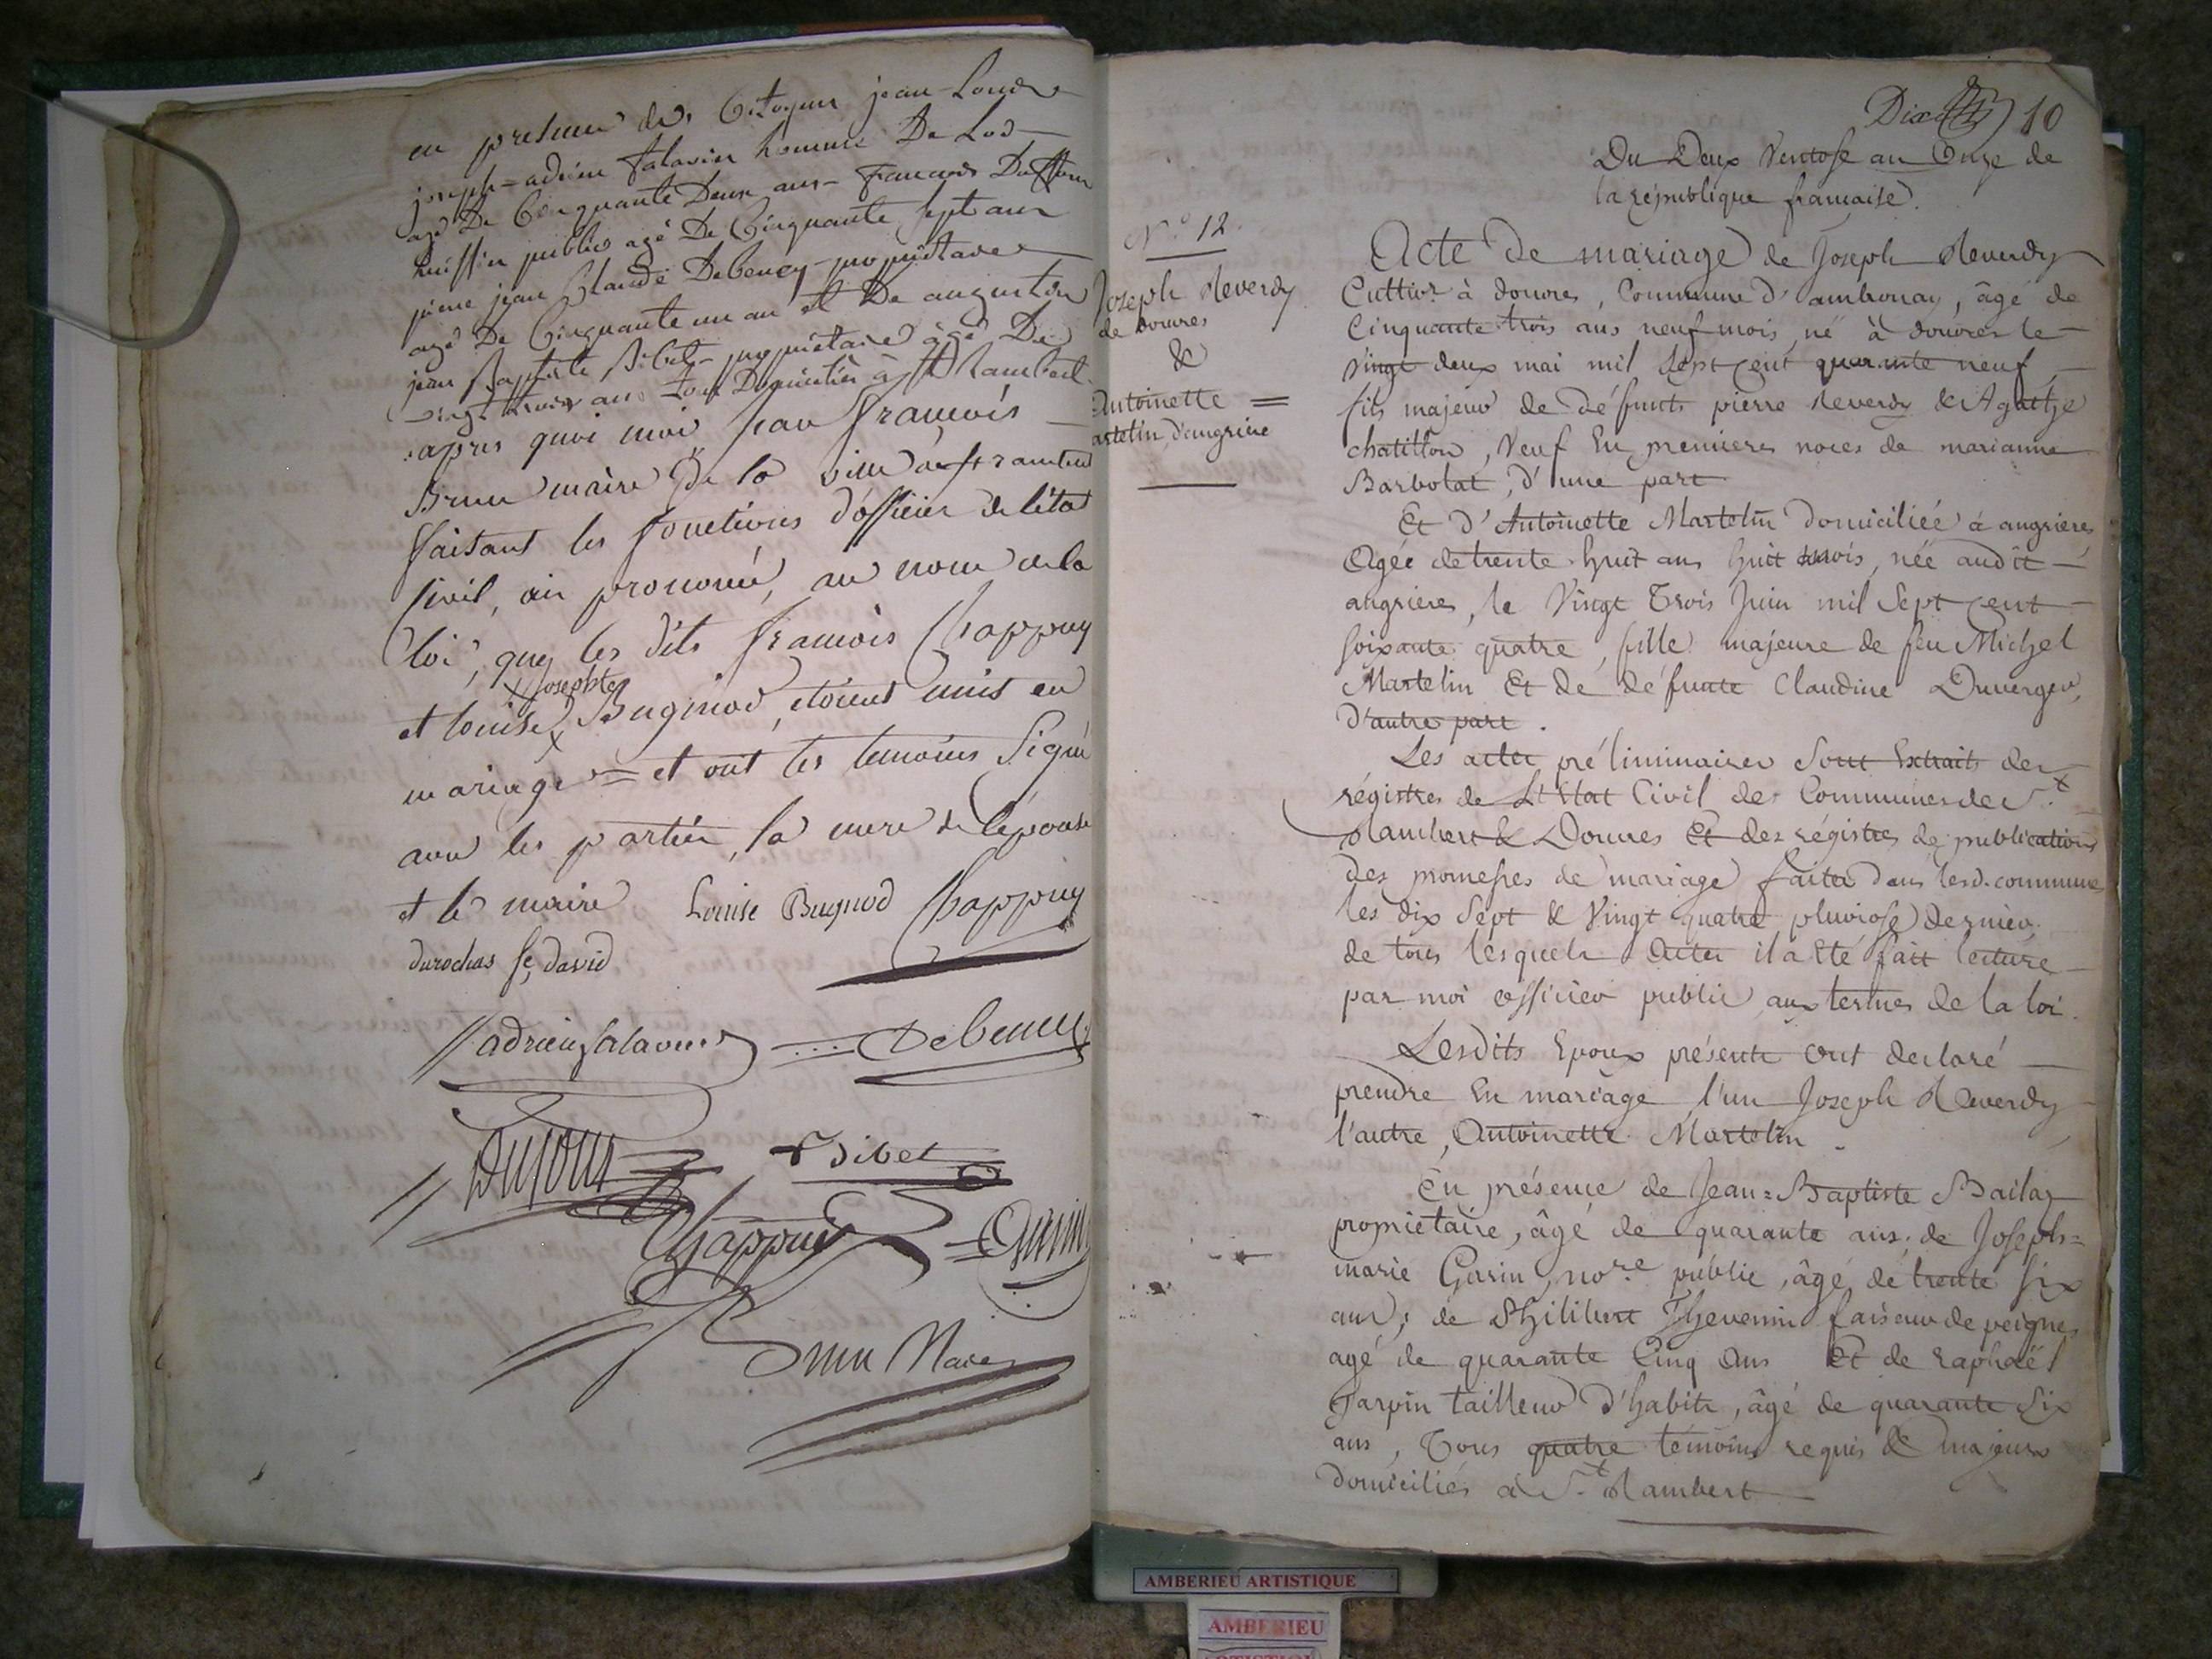 en presence des Citoyens jean-Louis
joseph-adrien Salavin homme De Loi
agé De Cinquante Deux ans - francois Dufour
huissier public agé De Cinquante sept ans
pierre jean Claude Debeney - propriétaire
agé De Cinquante un an et De augustin
jean Baptiste Sibet - propriétaire âgé De
vingt trois ans tous Domiciliés à St Rambert
après quoi moi jean francois
Brun maire De la ville de st rambert
faisant les fonctions d'officier de l'état
Civil, ai prononcé, au nom de la
loi, que les dits francois Chappuy
x josephte
et louise x Bugnod, étoient unis en
mariage = et ont les temoins Signé
avec les parties, la mere de l'épouse
et le maire Louise Bugnod Chappuy
durochas fe david
adrien Salavin Debeney
Dufour Sibet
Chappuy
Brun Maire
Dix 10
Du Deux Ventose an Onze de
la république francaise.
N.º 12.
Joseph Reverdy
de Douvres
&
Antoinette =
artelin d'angrière
Acte de mariage de Joseph Reverdy
Cultivr à douvres, Commune d'ambronay, âgé de
Cinquante trois ans neuf mois, né à douvres le
Vingt deux mai mil Sept Cent quarante neuf,
fils majeur de défunts pierre Reverdy & Agathe
chatillon, Veuf En premieres noces de marianne
Barbolat, d'une part
Et d'Antoinette Martelin Domiciliée à angrieres
Agée de trente huit ans huit mois, née audit
angrieres, le Vingt Trois Juin mil Sept Cent
soixante quatre, fille majeure de feu Michel
Martelin Et de défunte Claudine Duverger,
d'autre part.
Les actes préliminaires Sont Extraits des
régistres de L'Etat Civil des Communes de St
Rambert & Douvres Et des régistres de publications
des promesses de mariage faites dans lesd. communes
les dix Sept & Vingt quatre pluviose dernier,
de tous lesquels Actes il a Eté fait lecture
par moi officier public aux termes de la loi.
Lesdits Epoux présents ont declaré
prendre En mariage l'un Joseph Reverdy
l'autre, Antoinette Martelin.
En présence de Jean=Baptiste Bailay
proprietaire, âgé de quarante ans, de Joseph=
marie Garin, nore public, âgé de trente six
ans; de Philibert Thevenin faiseur de peignes
agé de quarante Cinq Ans Et de raphaël
Jarpin tailleur d'habits, âgé de quarante Six
ans, Tous quatre témoins requis & majeurs
Domiciliés à St Rambert
AMBERIEU ARTISTIQUE
AMBERIEU
ARTISTIQUE